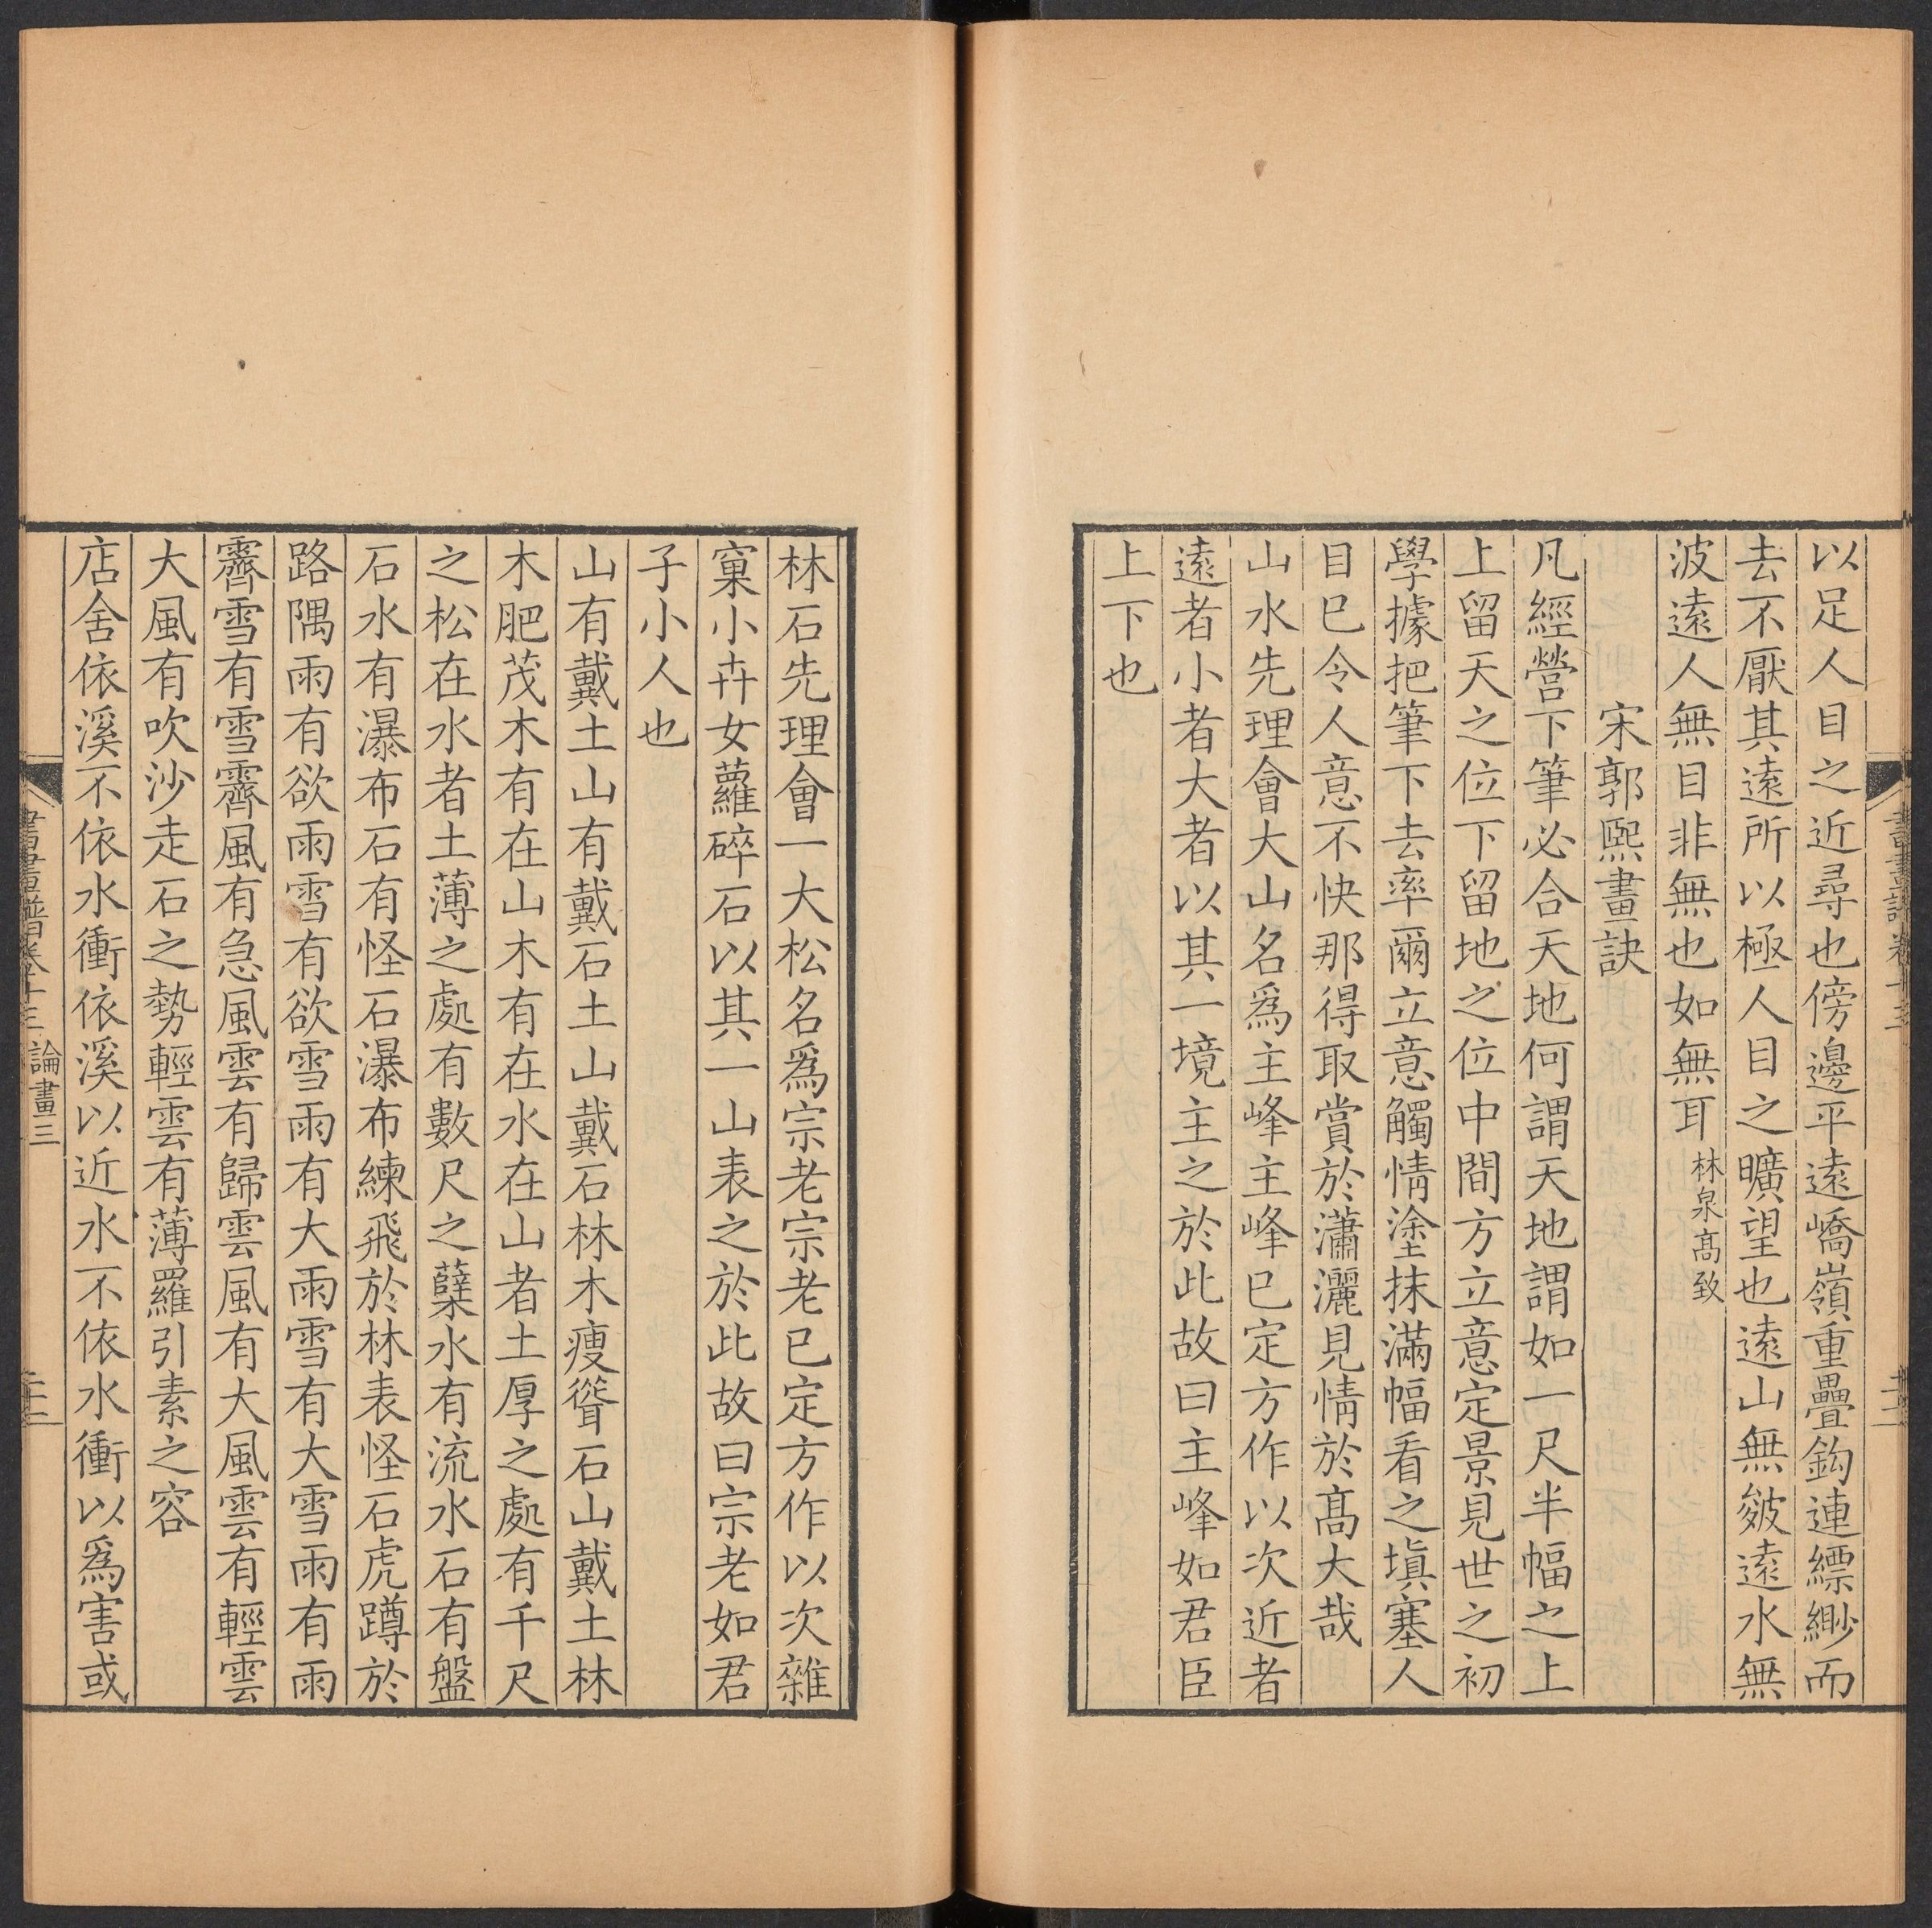 以足人目之近尋也傍邊平遠嶠嶺重疊鈎連縹緲而
去不厭其遠所以極人目之曠望也遠山無皴遠水無
波遠人無目非無也如無耳林泉髙致
宋郭熙畫訣
凡經營下筆必合天地何謂天地謂如一尺半幅之上
上留天之位下留地之位中間方立意定景見世之初
學據把筆下去率爾立意觸情塗抹滿幅看之塡塞人
目已令人意不快那得取賞於瀟灑見情於髙大哉
山水先理會大山名爲主峰主峰已定方作以次近者
遠者小者大者以其一境主之於此故曰主峰如君臣
上下也
林石先理會一大松名爲宗老宗老已定方作以次雜
窠小卉女蘿碎石以其一山表之於此故曰宗老如君
子小人也
山有戴土山有戴石土山戴石林木瘦聳石山戴土林
木肥茂木有在山木有在水在山者土厚之處有千尺
之松在水者土薄之處有數尺之蘖水有流水石有盤
石水有瀑布石有怪石瀑布練飛於林表怪石虎蹲於
路隅雨有欲雨雪有欲雪雨有大雨雪有大雪雨有雨
霽雪有雪霽風有急風雲有歸雲風有大風雲有輕雲
大風有吹沙走石之勢輕雲有薄羅引素之容
店舍依溪不依水衝依溪以近水不依水衝以爲害或
書畫譜卷十三 論畫三